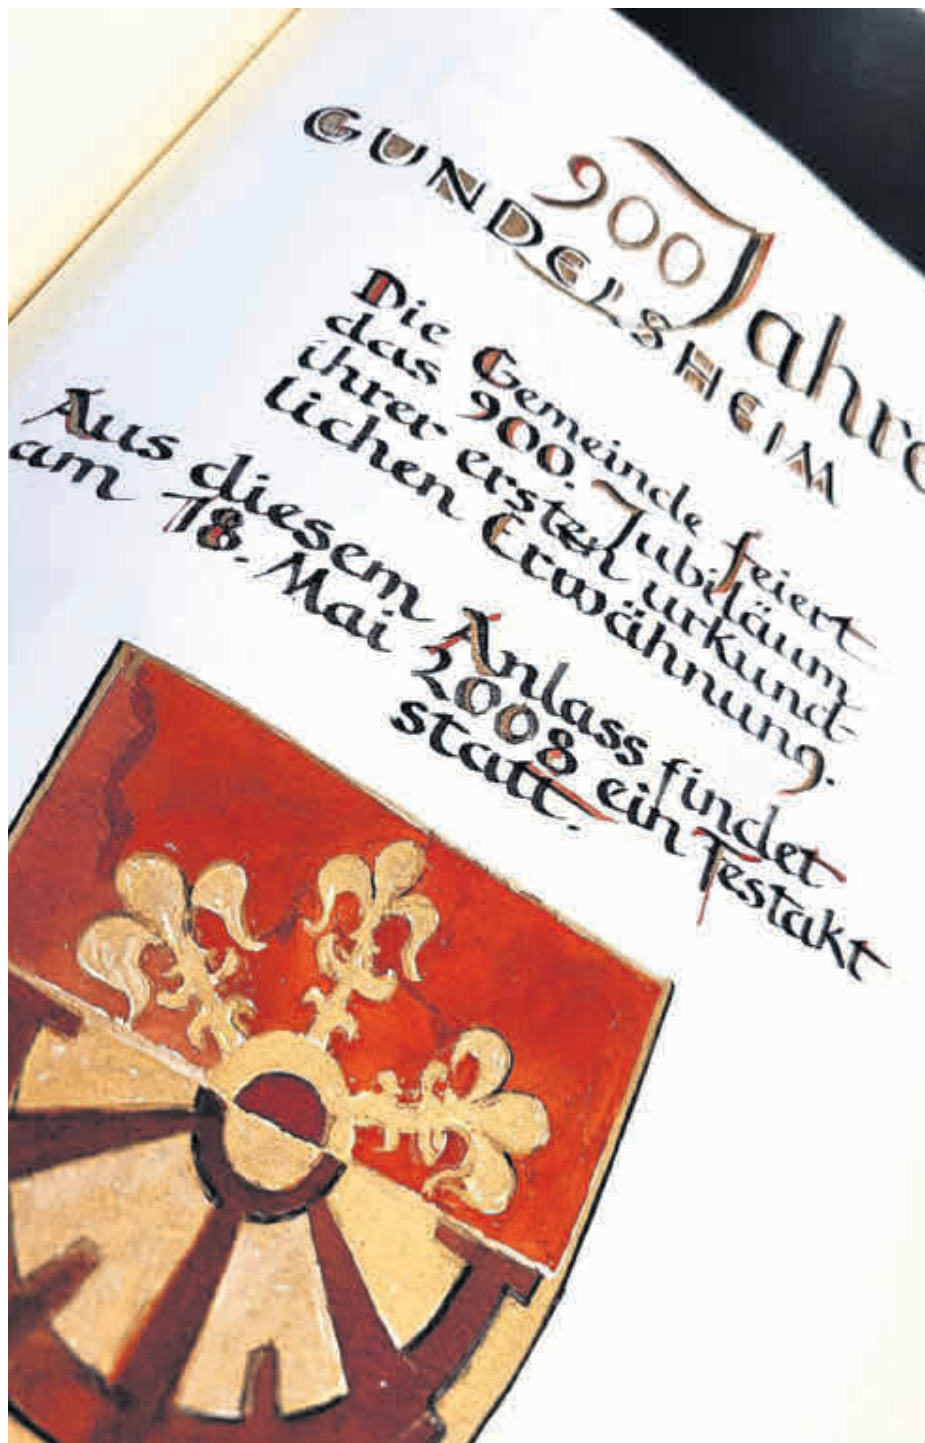 900 Jahre
GUNDELSHEIM
Die Gemeinde feiert
das 900. Jubiläum
ihrer ersten urkund-
lichen Erwähnung.
Aus diesem Anlass findet
am 18. Mai 2008 ein Festakt
statt.